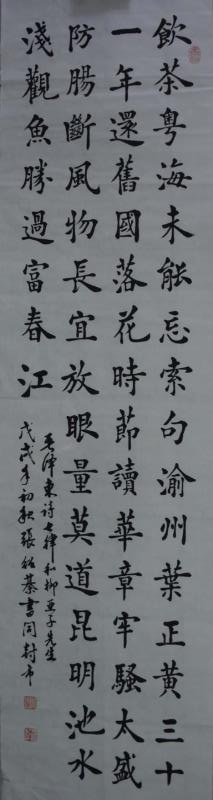 飲茶粵海未能忘索句渝州葉正黃三十
一年還舊國落花時節讀華章牢騷太盛
防腸斷風物長宜放眼量莫道昆明池水
淺觀魚勝過富春江
毛澤東詩七律和柳亞子先生
戊戌年初秋張書開封市